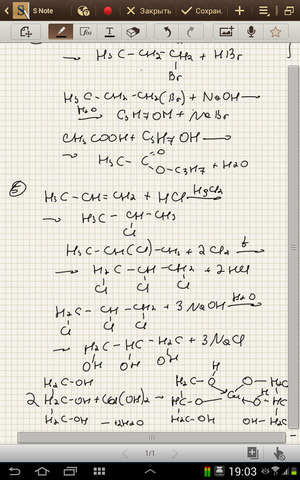 S Note
Закрыть
Сохран.
→ H₃C – CH₂ – CH₂ + HBr
Br
H₃C – CH₂ – CH₂(Br) + NaOH →
H₂O → C₃H₇OH + NaBr
CH₃COOH + C₃H₇OH →
→ H₃C – C
O
O – C₃H₇ + H₂O
Б
H₃C – CH = CH₂ + HCl HgCl₂
→ H₃C – CH – CH₃
Cl
H₃C – CH(Cl) – CH₃ + 2Cl₂ t →
→ H₂C – CH – CH₂ + 2HCl
Cl Cl Cl
H₂C – CH – CH₂ + 3NaOH H₂O →
Cl Cl Cl
→ H₂C – HC – H₂C + 3NaCl
OH OH OH
H
H₂C-OH H₂C – O O – H₂C
2 H₂C-OH + Cu(OH)₂ → HC – O Cu O – HC
H
H₂C-OH –2H₂O H₂C – OH OH – H₂C
1/1
19:03